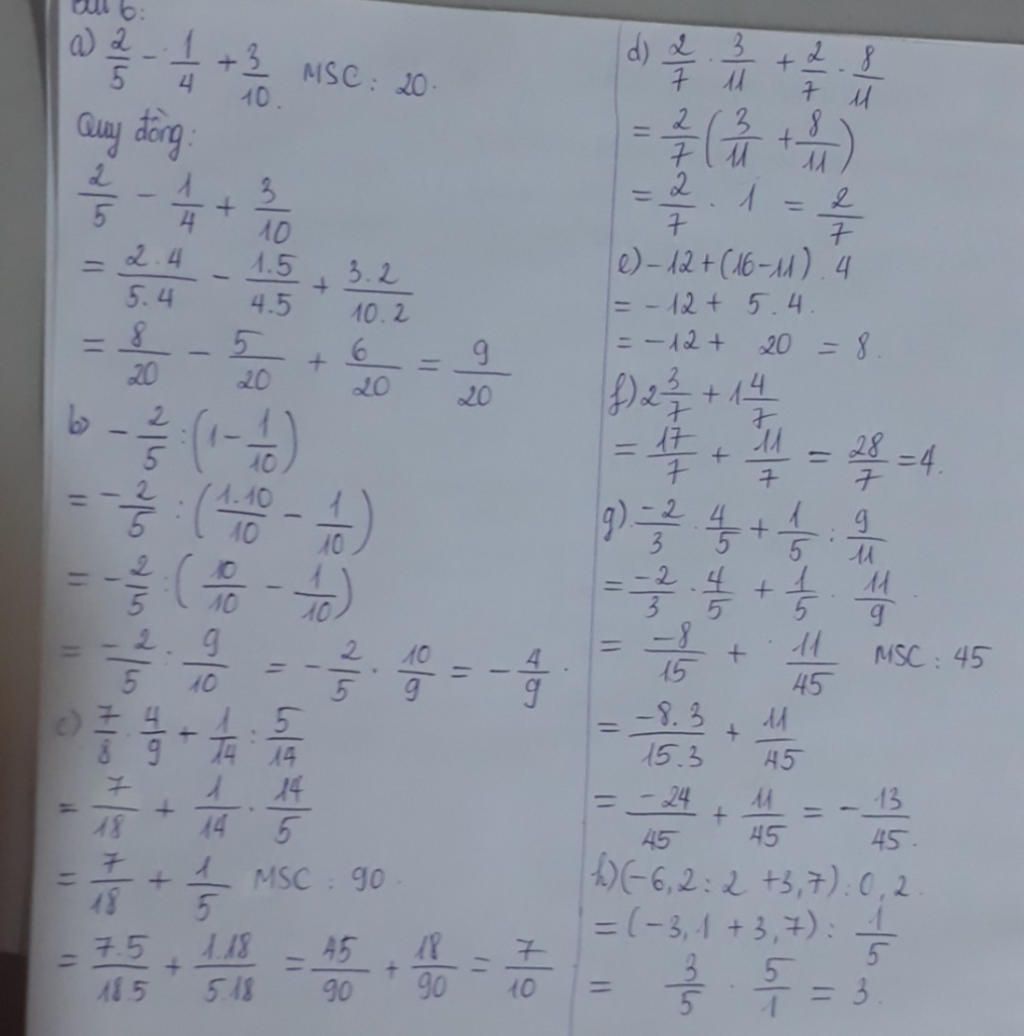 Bài 6:
a) 2/5 - 1/4 + 3/10. MSC: 20.
Quy đồng:
2/5 - 1/4 + 3/10
= 2.4/5.4 - 1.5/4.5 + 3.2/10.2
= 8/20 - 5/20 + 6/20 = 9/20
b) -2/5 : (1 - 1/10)
= -2/5 : (1.10/10 - 1/10)
= -2/5 : (10/10 - 1/10)
= -2/5 : 9/10 = -2/5 . 10/9 = -4/9.
c) 7/8 . 4/9 + 1/14 : 5/14
= 7/18 + 1/14 . 14/5
= 7/18 + 1/5 MSC: 90.
= 7.5/18.5 + 1.18/5.18 = 45/90 + 18/90 = 7/10
d) 2/7 . 3/11 + 2/7 . 8/11
= 2/7 (3/11 + 8/11)
= 2/7 . 1 = 2/7
e) -12 + (16 - 11) . 4
= -12 + 5 . 4.
= -12 + 20 = 8.
f) 2 3/7 + 1 4/7
= 17/7 + 11/7 = 28/7 = 4.
g) -2/3 . 4/5 + 1/5 : 9/11
= -2/3 . 4/5 + 1/5 . 11/9
= -8/15 + 11/45 MSC: 45
= -8.3/15.3 + 11/45
= -24/45 + 11/45 = -13/45.
h) (-6,2 : 2 + 3,7) : 0,2.
= (-3,1 + 3,7) : 1/5
= 3/5 . 5/1 = 3.